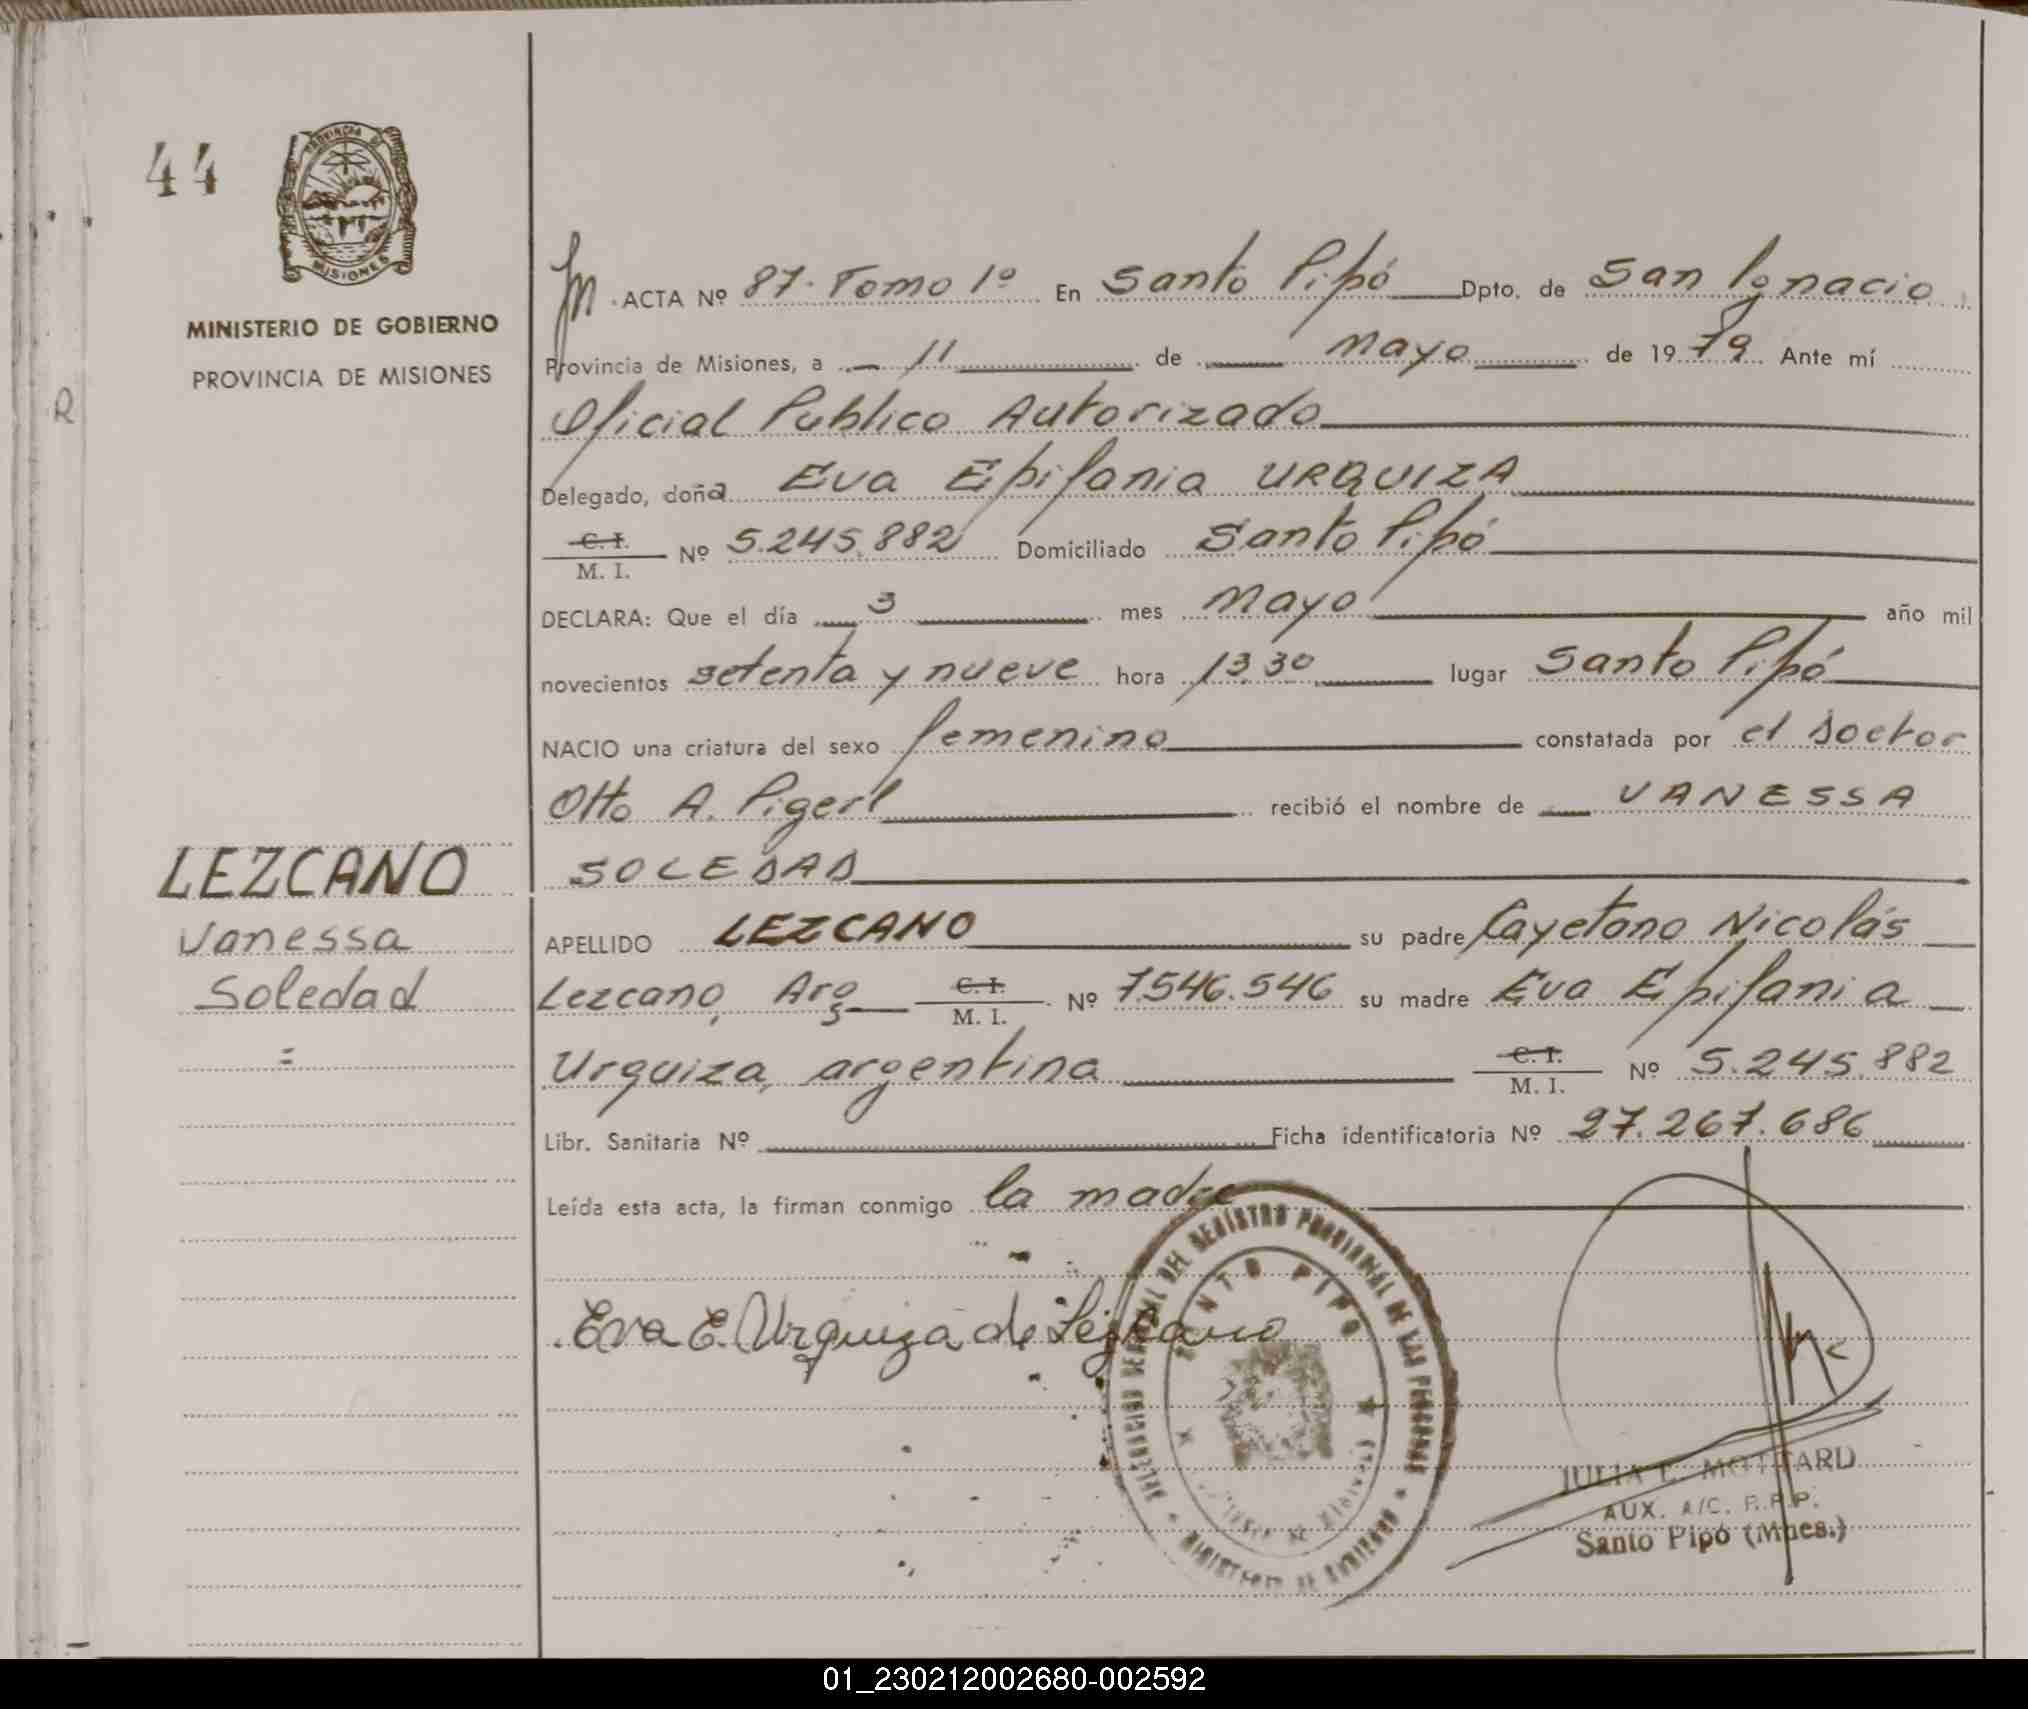 44
PROVINCIA DE
MISIONES
MINISTERIO DE GOBIERNO
PROVINCIA DE MISIONES
R
LEZCANO
Vanessa
Soledad
=
ACTA Nº 87. Tomo 1º En Santo Pipó Dpto. de San Ignacio
Provincia de Misiones, a 11 de Mayo de 1979 Ante mí
Oficial Publico Autorizado
Delegado, doña Eva Epifania URQUIZA
C. I.
M. I. Nº 5.245.882 Domiciliado Santo Pipó
DECLARA: Que el día 3 mes Mayo año mil
novecientos setenta y nueve hora 13,30 lugar Santo Pipó
NACIO una criatura del sexo femenino constatada por el Doctor
Otto A. Pigerl recibió el nombre de VANESSA
SOLEDAD
APELLIDO LEZCANO su padre Cayetano Nicolás
Lezcano, Arg C. I. M. I. Nº 7.546.546 su madre Eva Epifania
Urquiza, argentina C. I. M. I. Nº 5.245.882
Libr. Sanitaria Nº Ficha identificatoria Nº 27.267.686
Leída esta acta, la firman conmigo la madre
Eva E. Urquiza de Lezcano
DEL REGISTRO PROVINCIAL DE LAS PERSONAS
SANTO PIPO
MINISTERIO DE GOBIERNO
JULIA E. MOTTARD
AUX. A/C. R.P.P.
Santo Pipó (Mnes.)
01_230212002680-002592